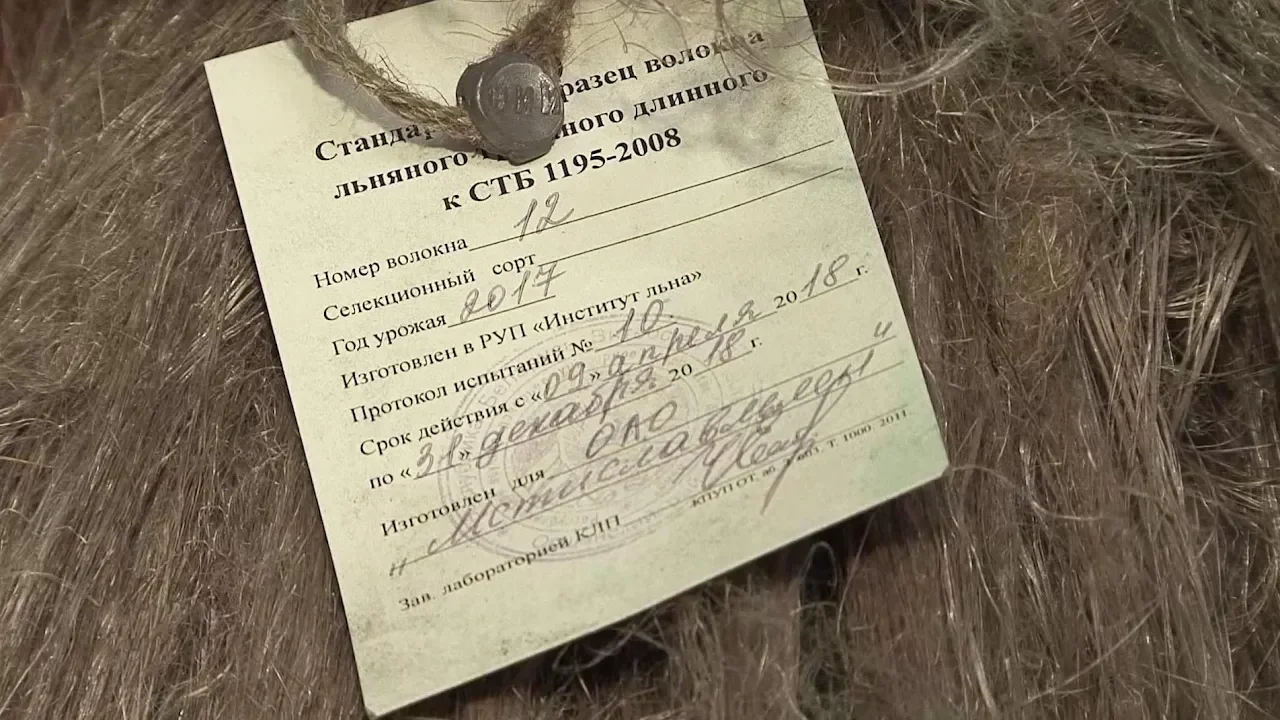 Станда разец волокна
льняного ного длинного
к СТБ 1195-2008
Номер волокна 12
Селекционный сорт
Год урожая 2017
Изготовлен в РУП «Институт льна»
Протокол испытаний № 10.
Срок действия с «09» апреля 2018 г.
по «31» декабря 2018 г.
Изготовлен для ОАО "
" Мстиславлведы
Зав. лабораторией КЛП
т. 1000. 2011